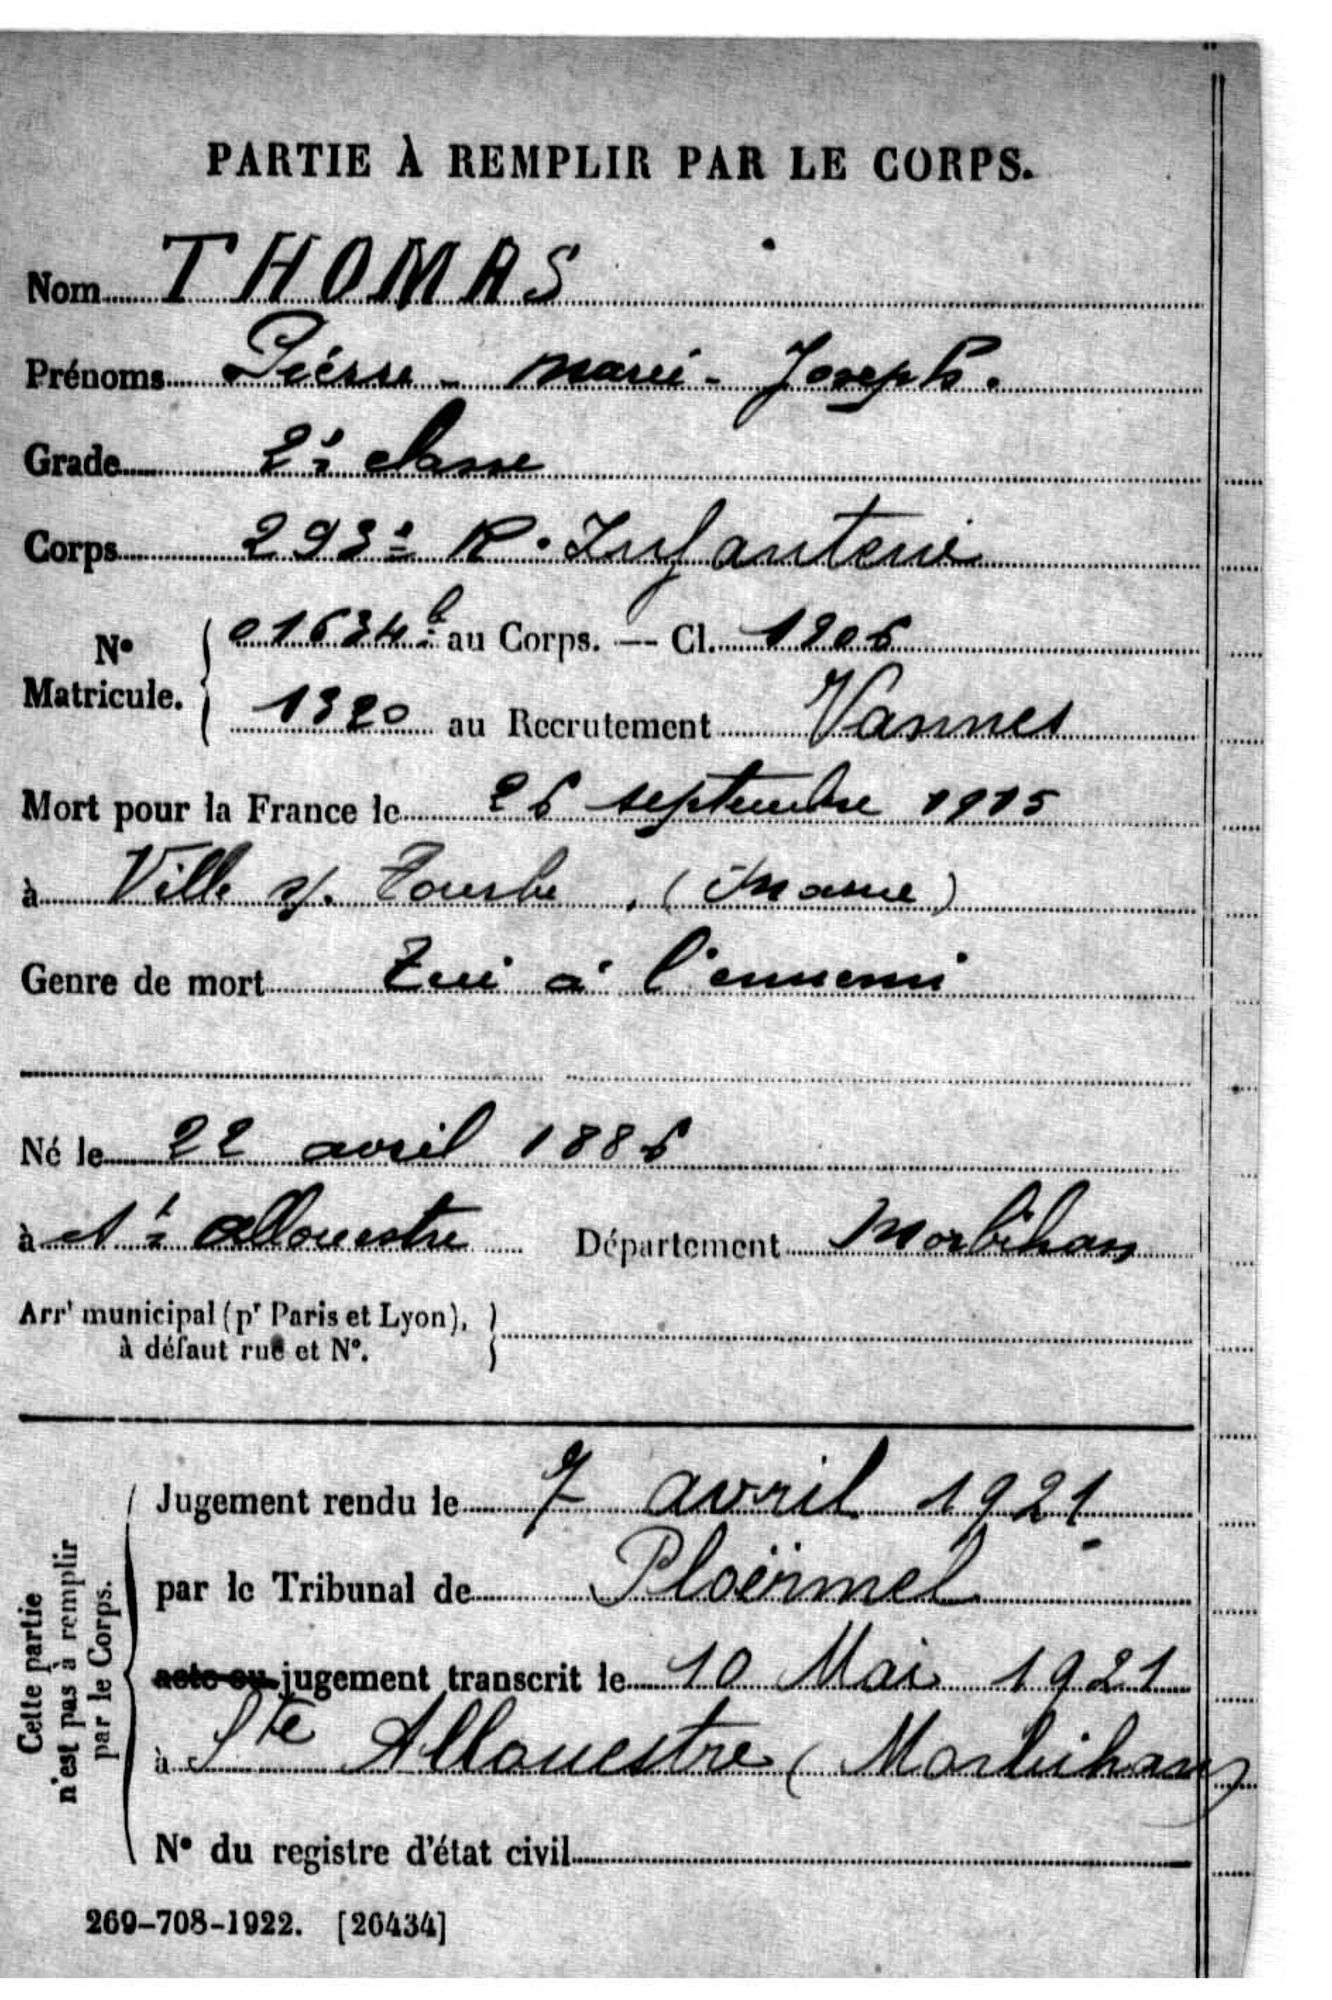 PARTIE À REMPLIR PAR LE CORPS.
Nom THOMAS
Prénoms Pierre - Marie - Joseph.
Grade 2è classe
Corps 293è R. Infanterie
N° Matricule. 01634 b au Corps. — Cl. 1906
1320 au Recrutement Vannes
Mort pour la France le 26 septembre 1915
à Ville s/. Tourbe, (Marne)
Genre de mort Tué à l'ennemi
Né le 22 avril 1886
à St Allouestre Département Morbihan
Arrt municipal (pr Paris et Lyon),
à défaut rue et N°.
Cette partie
n'est pas à remplir
par le Corps.
Jugement rendu le 7 avril 1921
par le Tribunal de Ploërmel
acte ou jugement transcrit le 10 Mai 1921
à Ste Allouestre (Morbihan)
N° du registre d'état civil
269-708-1922. [26434]